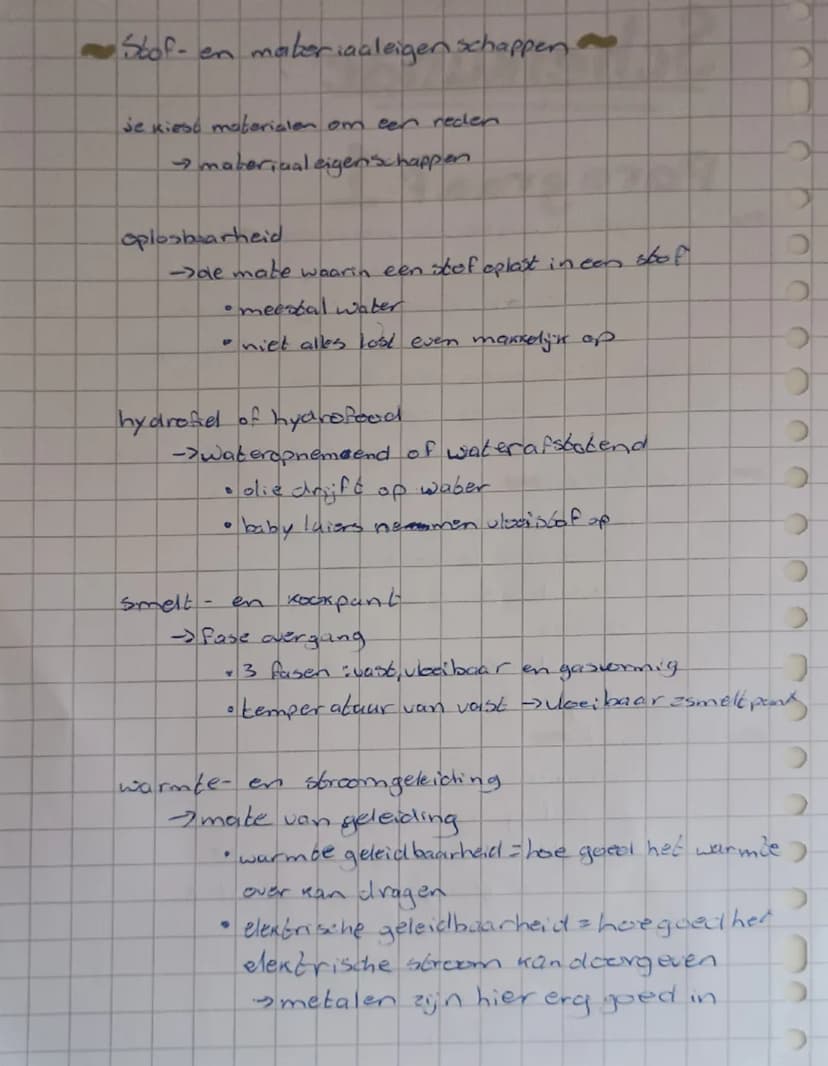 ~ Stof- en materiaaleigenschappen ~
je kiest materialen om een reden
→ materiaaleigenschappen
oplosbaarheid
→ de mate waarin een stof oplost in een stof
• meestal water
• niet alles lost even makkelijk op
hydrofiel of hydrofoob
→ wateropnemend of waterafstotend
• olie drijft op water
• baby luiers nemen vloeistof op
smelt- en kookpunt
→ fase overgang
• 3 fasen : vast, vloeibaar en gasvormig
• temperatuur van vast → vloeibaar = smeltpunt
warmte- en stroomgeleiding
→ mate van geleiding
• warmte geleidbaarheid = hoe goed het warmte
over kan dragen
• elektrische geleidbaarheid = hoe goed het
elektrische stroom kan doorgeven
→ metalen zijn hier erg goed in